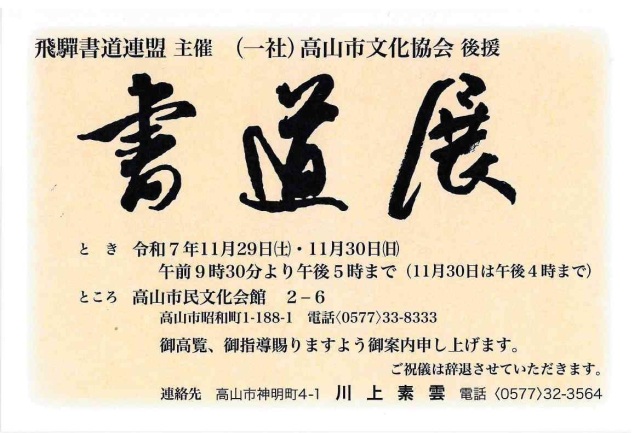 飛驒書道連盟 主催 (一社)高山市文化協会 後援
書道展
とき 令和7年11月29日㈯・11月30日㈰
午前9時30分より午後5時まで（11月30日は午後4時まで）
ところ 高山市民文化会館 2−6
高山市昭和町1-188-1 電話〈0577〉33-8333
御高覧、御指導賜りますよう御案内申し上げます。
ご祝儀は辞退させていただきます。
連絡先 高山市神明町4-1 川上素雲 電話〈0577〉32-3564